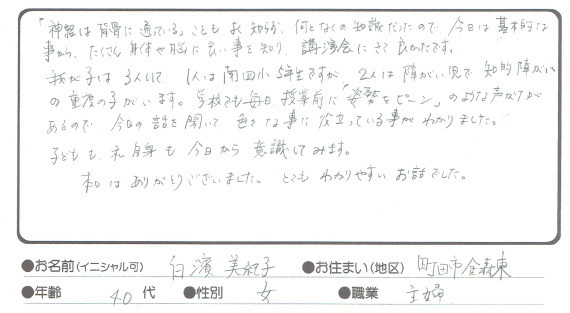 「神経は背骨に通っている」こともよく知らず、何となくの知識だったので、今日は基本的な
事から、たくさん身体や脳に良い事を知り、講演会にきて良かったです。
我が子は3人いて、1人は南四小5年生ですが、2人は障がい児で知的障がい
の重度の子がいます。学校でも毎日、授業前に「姿勢をピーン」のような声かけが
あるので、今日の話を聞いて色々な事に役立っている事がわかりました。
子どもも、私自身も今日から意識してみます。
本日はありがとうございました。とてもわかりやすいお話でした。
●お名前(イニシャル可) 白濱 美紀子 ●お住まい(地区) 町田市金森東
●年齢 40 代 ●性別 女 ●職業 主婦